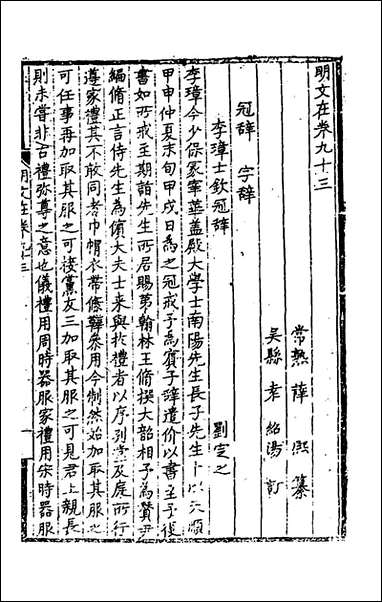 明文在卷九十三
常熟薛熙纂
吳縣李紹湯訂
冠辭 字辭
李璋士欽冠辭 劉定之
李璋今少保冢宰華蓋殿大學士南陽先生長子先生卜以天順
甲申仲夏末旬甲戌日為之冠戒予為賓予辭遣价以書至予復
書如所戒至期詣先生所居賜第翰林王脩撰大韶相予為贊尹
編脩正言侍先生為儐大夫士來與於禮者以序列堂及庭所行
遵家禮其不敢同者巾帽衣帶絛鞾叅用今制然始加取其服之
可任事再加取其服之可接黨友三加取其服之可見君上親長
則未嘗非古禮彌尊之意也儀禮用周時器服家禮用宋時器服
明文在卷九三